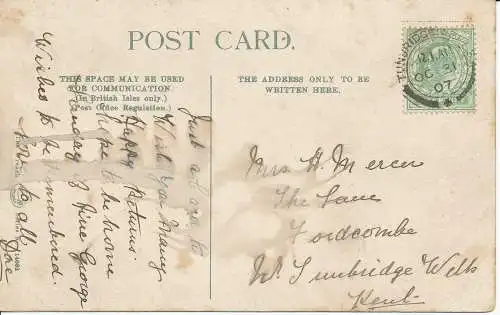 POST CARD.
THIS SPACE MAY BE USED
FOR COMMUNICATION.
(In British Isles only.)
(Post Office Regulation.)
THE ADDRESS ONLY TO BE
WRITTEN HERE.
TUNBRIDGE
OC 31
07
Just a Card to
Wish you Many
Happy Returns
hope to be home
Sunday if fine George
Wishes to be remembered.
to all
Mrs H. Mercer
The Lane
Fordcombe
Nr Tunbridge Wells
Kent